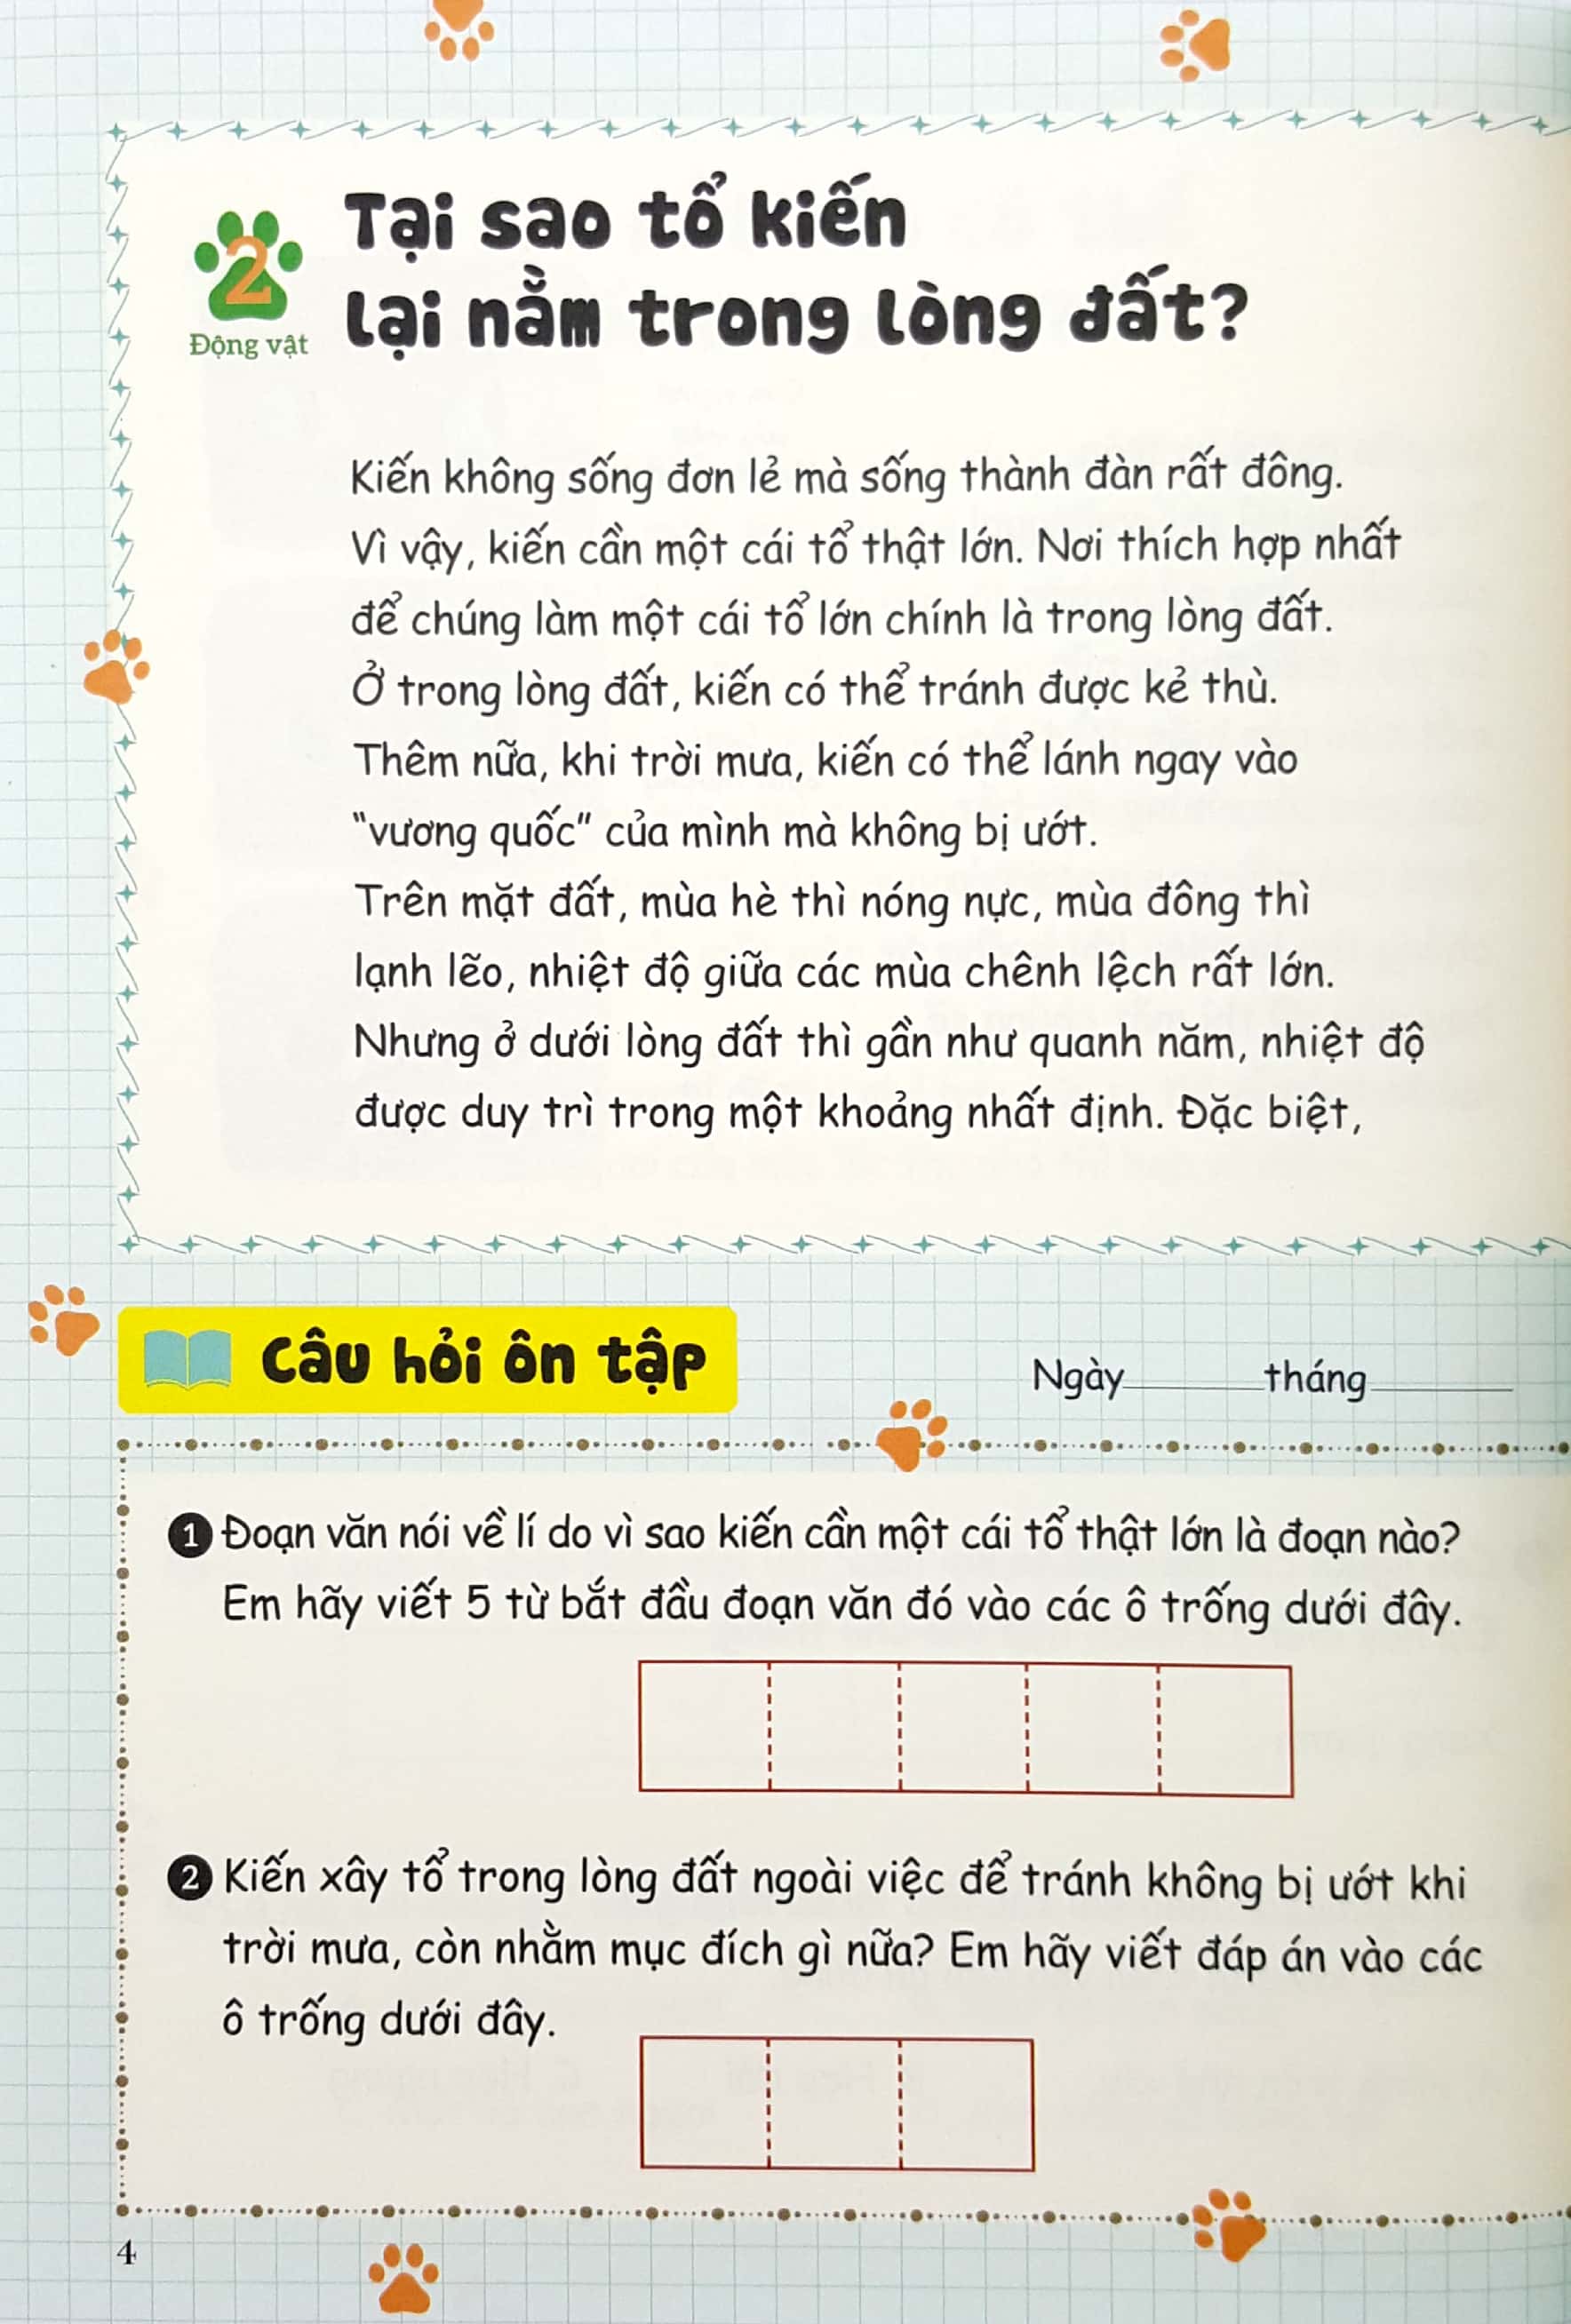 2
Động vật
Tại sao tổ kiến
lại nằm trong lòng đất?
Kiến không sống đơn lẻ mà sống thành đàn rất đông.
Vì vậy, kiến cần một cái tổ thật lớn. Nơi thích hợp nhất
để chúng làm một cái tổ lớn chính là trong lòng đất.
Ở trong lòng đất, kiến có thể tránh được kẻ thù.
Thêm nữa, khi trời mưa, kiến có thể lánh ngay vào
“vương quốc” của mình mà không bị ướt.
Trên mặt đất, mùa hè thì nóng nực, mùa đông thì
lạnh lẽo, nhiệt độ giữa các mùa chênh lệch rất lớn.
Nhưng ở dưới lòng đất thì gần như quanh năm, nhiệt độ
được duy trì trong một khoảng nhất định. Đặc biệt,
Câu hỏi ôn tập
Ngày______tháng______
1 Đoạn văn nói về lí do vì sao kiến cần một cái tổ thật lớn là đoạn nào?
Em hãy viết 5 từ bắt đầu đoạn văn đó vào các ô trống dưới đây.
2 Kiến xây tổ trong lòng đất ngoài việc để tránh không bị ướt khi
trời mưa, còn nhằm mục đích gì nữa? Em hãy viết đáp án vào các
ô trống dưới đây.
4